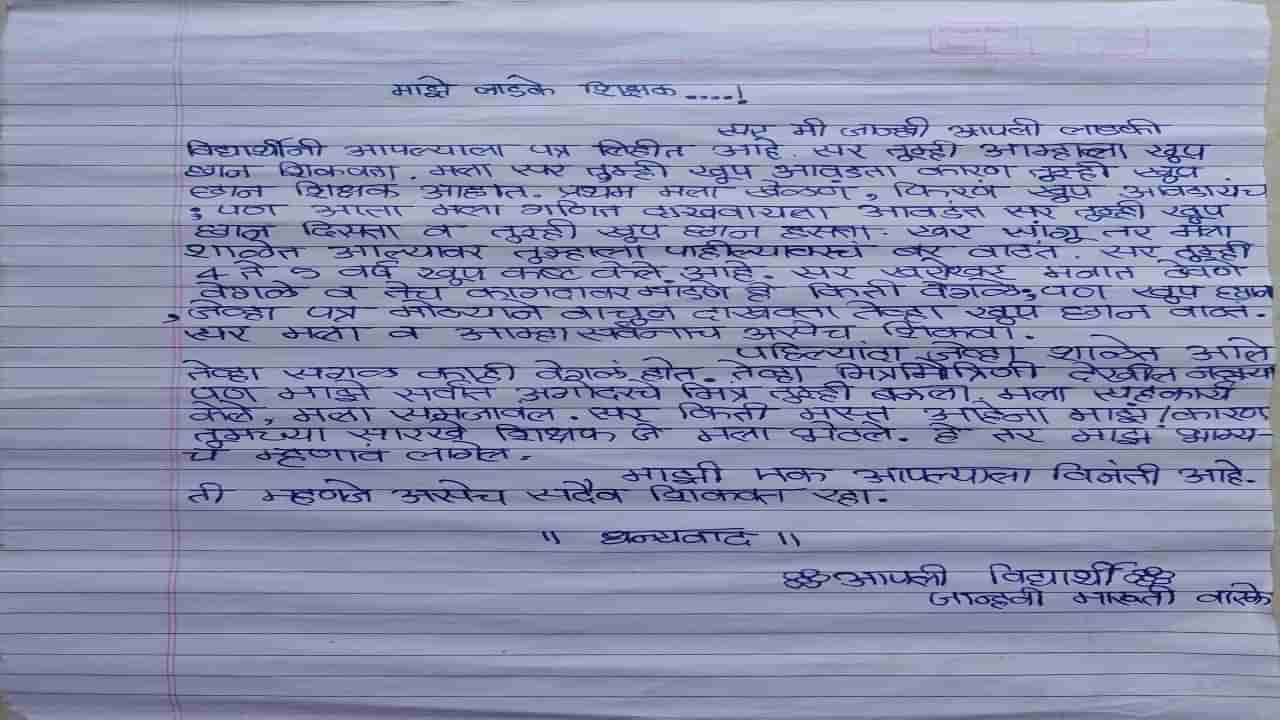 माझे लाडके शिक्षक ....!
सर मी जान्हवी आपली लाडकी
विद्यार्थीनी आपल्याला पत्र लिहीत आहे. सर तुम्ही आम्हाला खुप
छान शिकवता. मला सर तुम्ही खुप आवडता कारण तुम्ही खुप
छान शिक्षक आहात. प्रथम मला खेळणं, फिरणं खुप आवडायचं
; पण आता मला गणित आवडतं सर तुम्ही खुप
छान दिसता व तुम्ही खुप छान हसता. खरं सांगू तर मला
शाळेत आल्यावर तुम्हाला पाहील्यावरचं बरं वाटतं. सर तुम्ही
4 ते 5 वर्ष खुप कष्ट केले आहे. सर खरोखर मनात ठेवणं
वेगळे व तेच कागदावर मांडणं हे किती वेगळे; पण खुप छान
, जेव्हा पत्र मोठ्यानं वाचुन दाखवता तेव्हा खुप छान वाटतं.
सर मला व आम्हा सर्वांनाच असेच शिकवा.
पहिल्यांदा जेव्हा शाळेत आले
तेव्हा सगळं काही वेगळं होतं. तेव्हा मित्रमैत्रिणी देखील नव्हत्या
पण माझे सर्वात अगोदरचे मित्र तुम्ही बनला. मला सहकार्य
केले, मला समजावलं. सर किती मस्त आहेना माझे! कारण
तुमच्या सारखे शिक्षक जे मला भेटले. हे तर माझं भाग्य-
चं म्हणावं लागेल.
माझी एक आपल्याला विनंती आहे.
ती म्हणजे असेच सदैव शिकवत रहा.
॥ धन्यवाद ॥
आपली विद्यार्थी
जान्हवी मारूती वारके